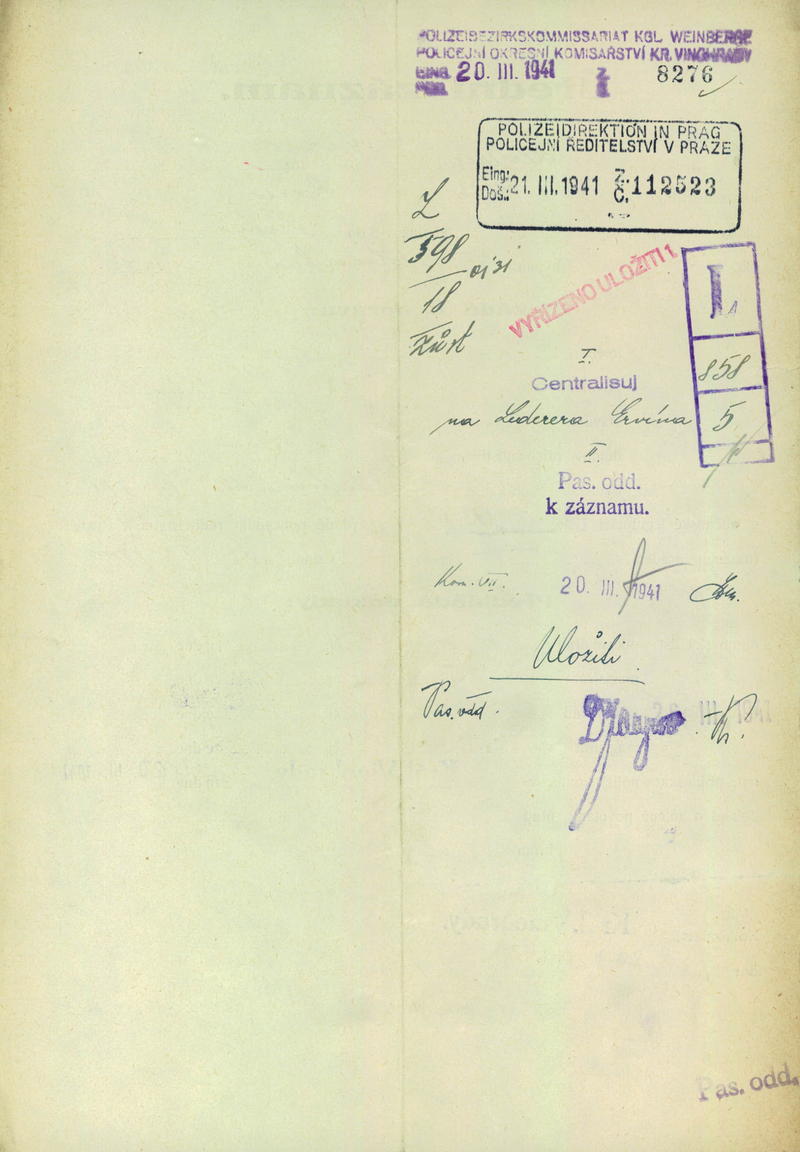 POLIZEIBEZIRKSKOMMISSARIAT KGL. WEINBERGE
POLICEJNÍ OKRESNÍ KOMISAŘSTVÍ KR. VINOHRADY
20. III. 1941 8276
POLIZEIDIREKTION IN PRAG
POLICEJNÍ ŘEDITELSTVÍ V PRAZE
Eing.: Doš.: 21. III. 1941 Z. Č. 112523
L
598
18
VYŘÍZENO ULOŽITI 1.
L
858
5
I.
Centralisuj
na Lederera Ervína
II.
Pas. odd.
k záznamu.
Kom. VII. 20. III. 1941
Uložiti
Pas. odd.
Pas. odd.